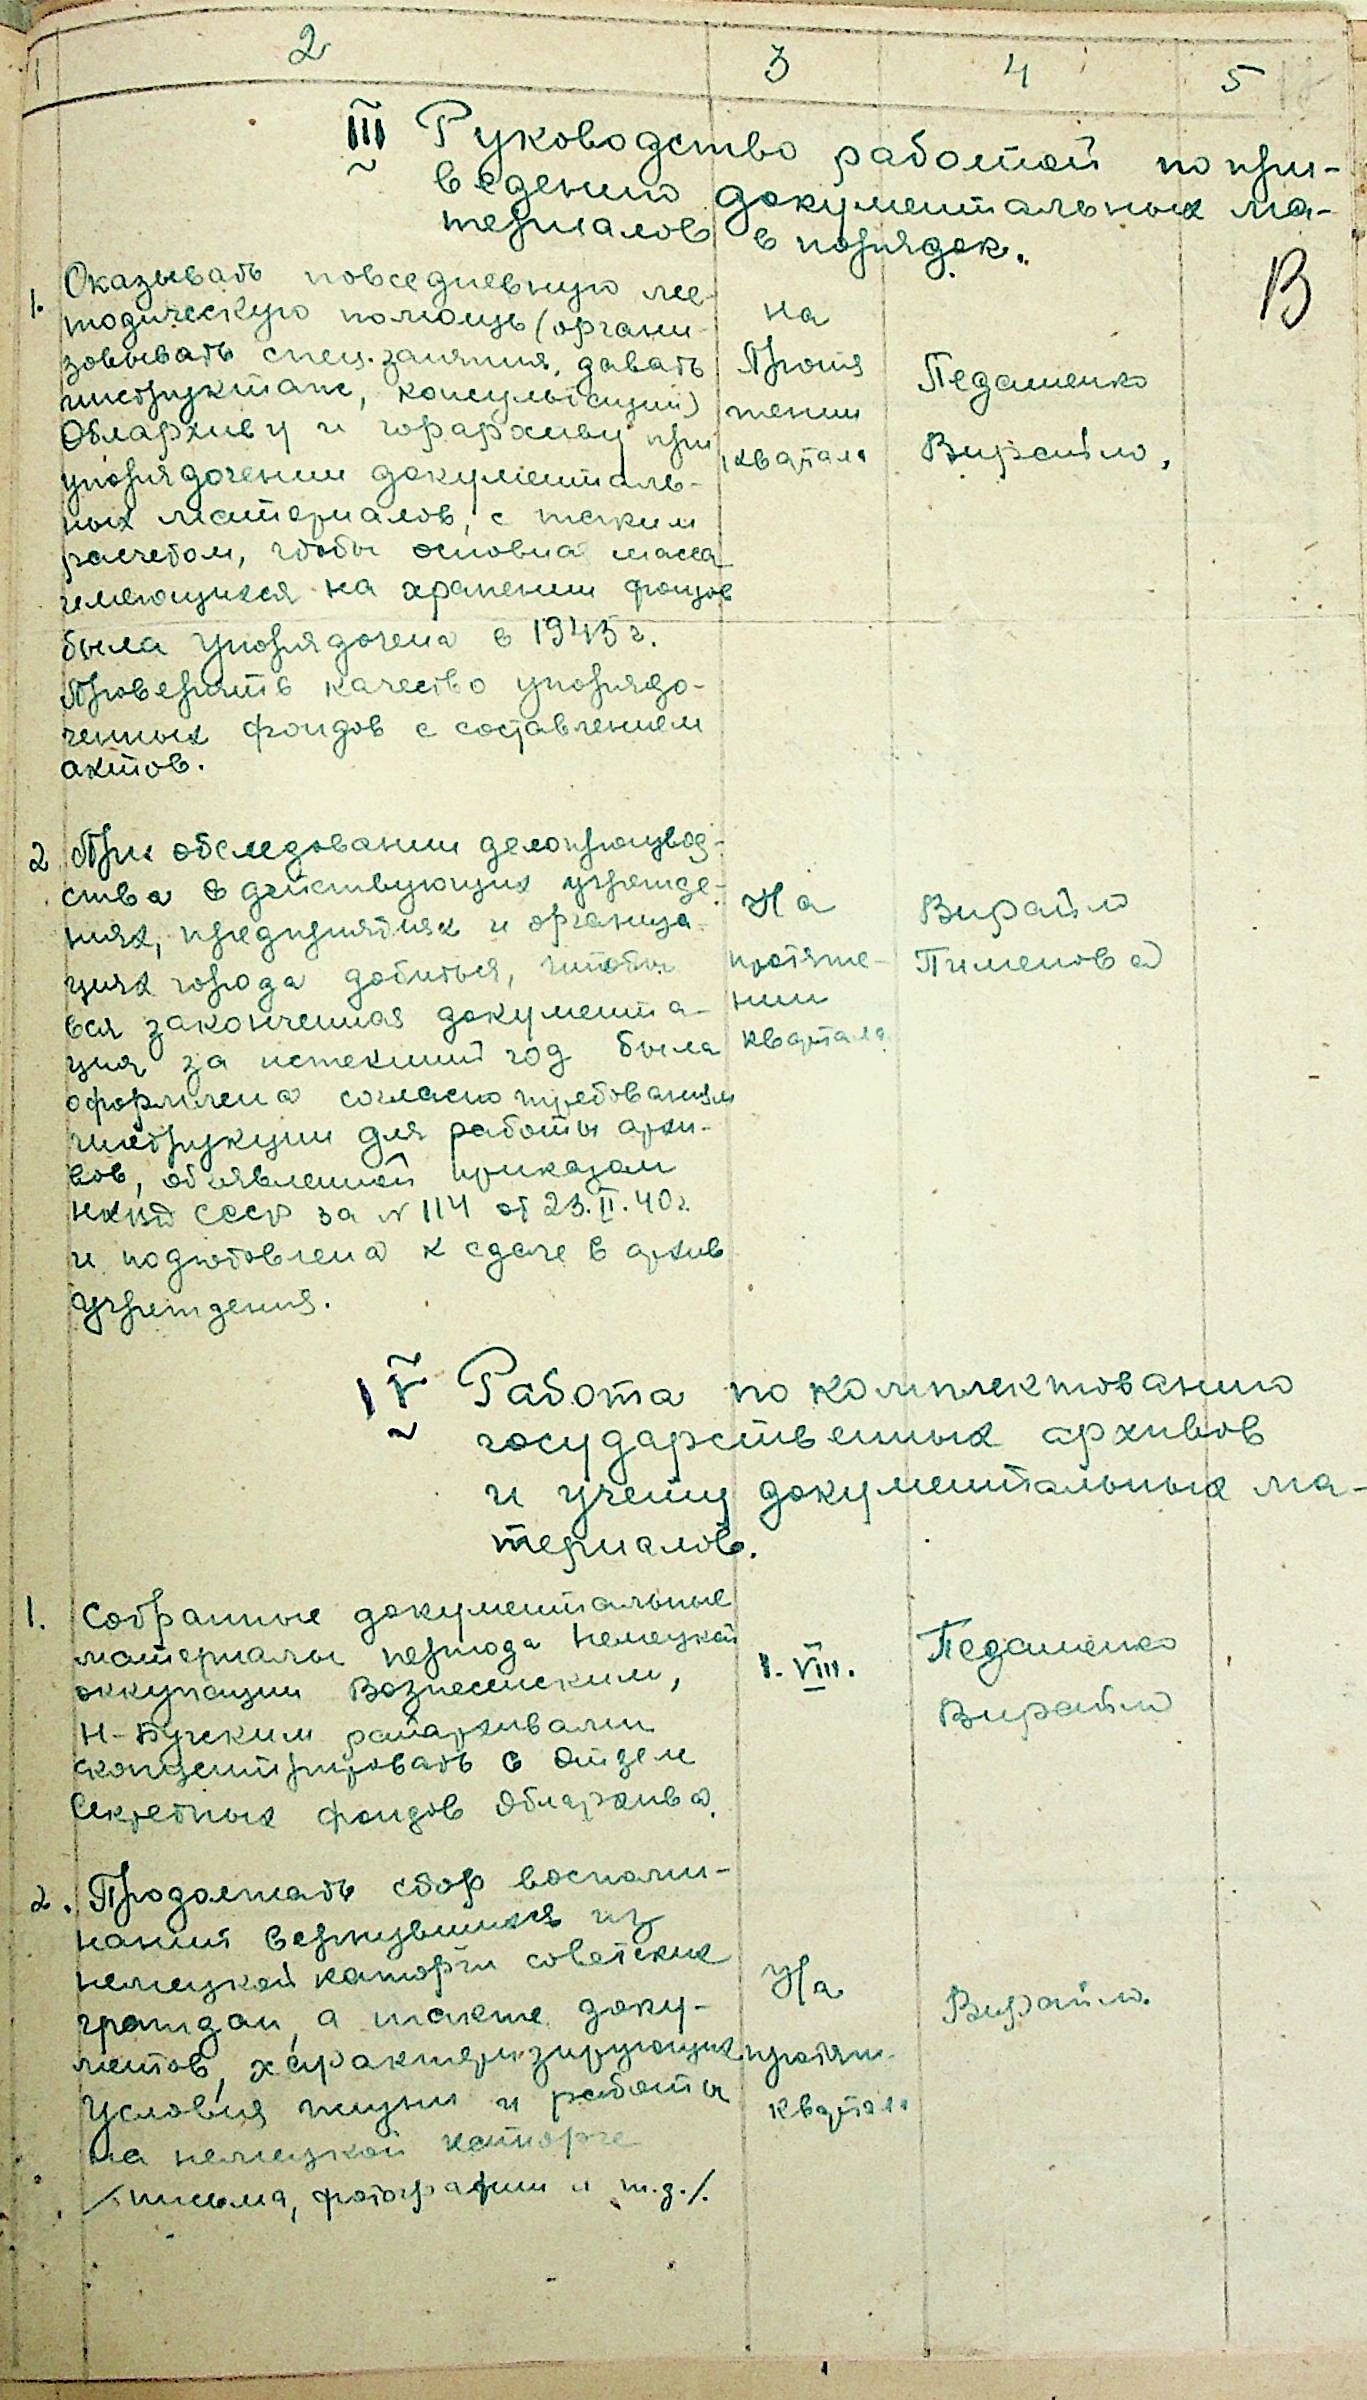 1 2 3 4 5
III Руководство работой по при-
ведению документальных ма-
териалов в порядок.
В
1. Оказывать повседневную ме-
тодическую помощь (органи-
зовывать спец. занятия, давать
инструктаж, консультации)
Облархиву и горархиву при
упорядочении документаль-
ных материалов, с таким
расчетом, чтобы основная масса
имеющихся на хранении фондов
была упорядочена в 1945 г.
Проверять качество упорядо-
ченных фондов с составлением
актов.
на
Протя
жении
квартала
Педашенко
Вирайло.
2 При обследовании делопроизвод-
ства в действующих учрежде-
ниях, предприятиях и организа-
циях города добиться, чтобы
вся законченная документа-
ция за истекший год была
оформлена согласно требованиям
инструкции для работы архи-
вов, объявленной приказом
НКВД СССР за № 114 от 23.II.40 г.
и подготовлена к сдаче в архив
учреждения.
На
протяже-
нии
квартала
Вирайло
Пименова
IV Работа по комплектованию
государственных архивов
и учету документальных ма-
териалов.
1. Собранные документальные
материалы периода немецкой
оккупации Вознесенским,
Н-Бугским райархивами
сконцентрировать в отделе
секретных фондов Облархива.
1.VIII.
Педашенко
Вирайло
2. Продолжать сбор воспоми-
наний вернувшихся из
немецкой каторги советских
граждан, а также доку-
ментов, характеризирующих
условия жизни и работы
на немецкой каторге
/письма, фотографии и т.д./.
На
протяж.
квартала
Вирайло.